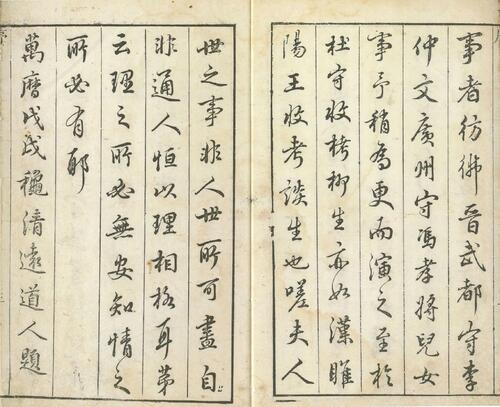 事者彷彿晉武都守李
仲文廣州守馮孝將兒女
事予稍為更而演之至於
杜守收拷柳生亦如漢睢
陽王收考談生也嗟夫人
世之事非人世所可盡自
非通人恒以理相格耳苐
云理之所必無安知情之
所必有邪
萬曆戊戌穐清遠道人題